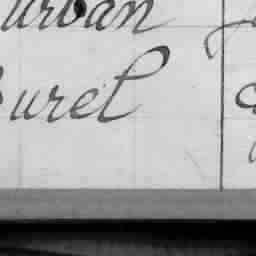 urban
urel